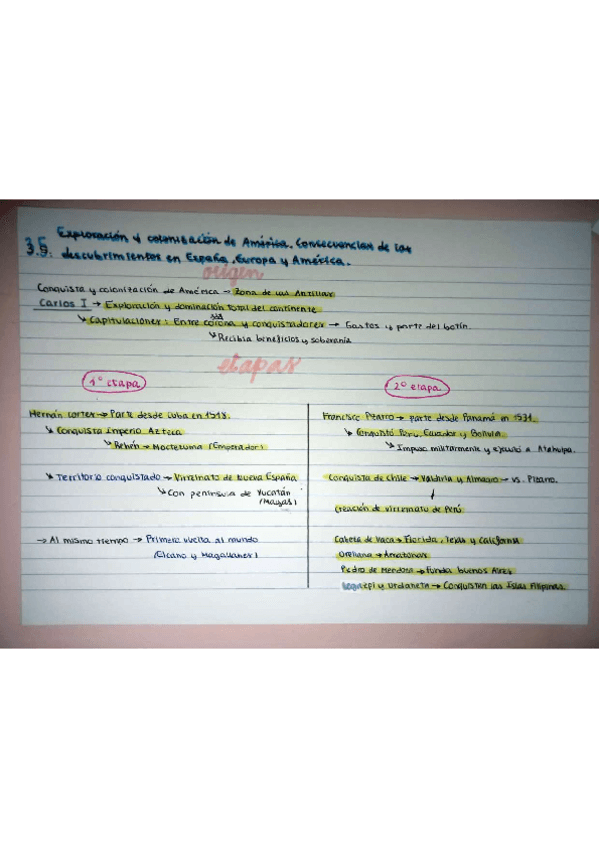 3.5. Exploración y colonización de América. Consecuencias de los
descubrimientos en España, Europa y América.
origen
Conquista y colonización de América → Zona de las Antillas
Carlos I → Exploración y dominación total del continente
↳ Capitulaciones: Entre corona y conquistadores → Gastos y parte del botín.
↳ Recibía beneficios y soberanía
etapas
1º etapa
Hernán cortes → Parte desde Cuba en 1518.
↳ Conquista Imperio Azteca
↳ Rehén → Moctezuma (Emperador)
↳ Territorio conquistado → Virreinato de Nueva España
↳ Con península de Yucatán
(Mayas)
→ Al mismo tiempo → Primera vuelta al mundo
(Elcano y Magallanes)
2º etapa
Francisco Pizarro → parte desde Panamá en 1531.
↳ Conquistó Perú, Ecuador y Bolivia.
↳ Impuso militarmente y ejecutó a Atahulpa.
Conquista de Chile → Valdivia y Almagro → vs. Pizarro.
↓
Creación de virreinato de Perú
Cabeza de Vaca → Florida, Texas y California
Orellana → Amazonas
Pedro de Mendoza → funda buenos Aires
Legazpi y Urdaneta → Conquistan las Islas Filipinas.